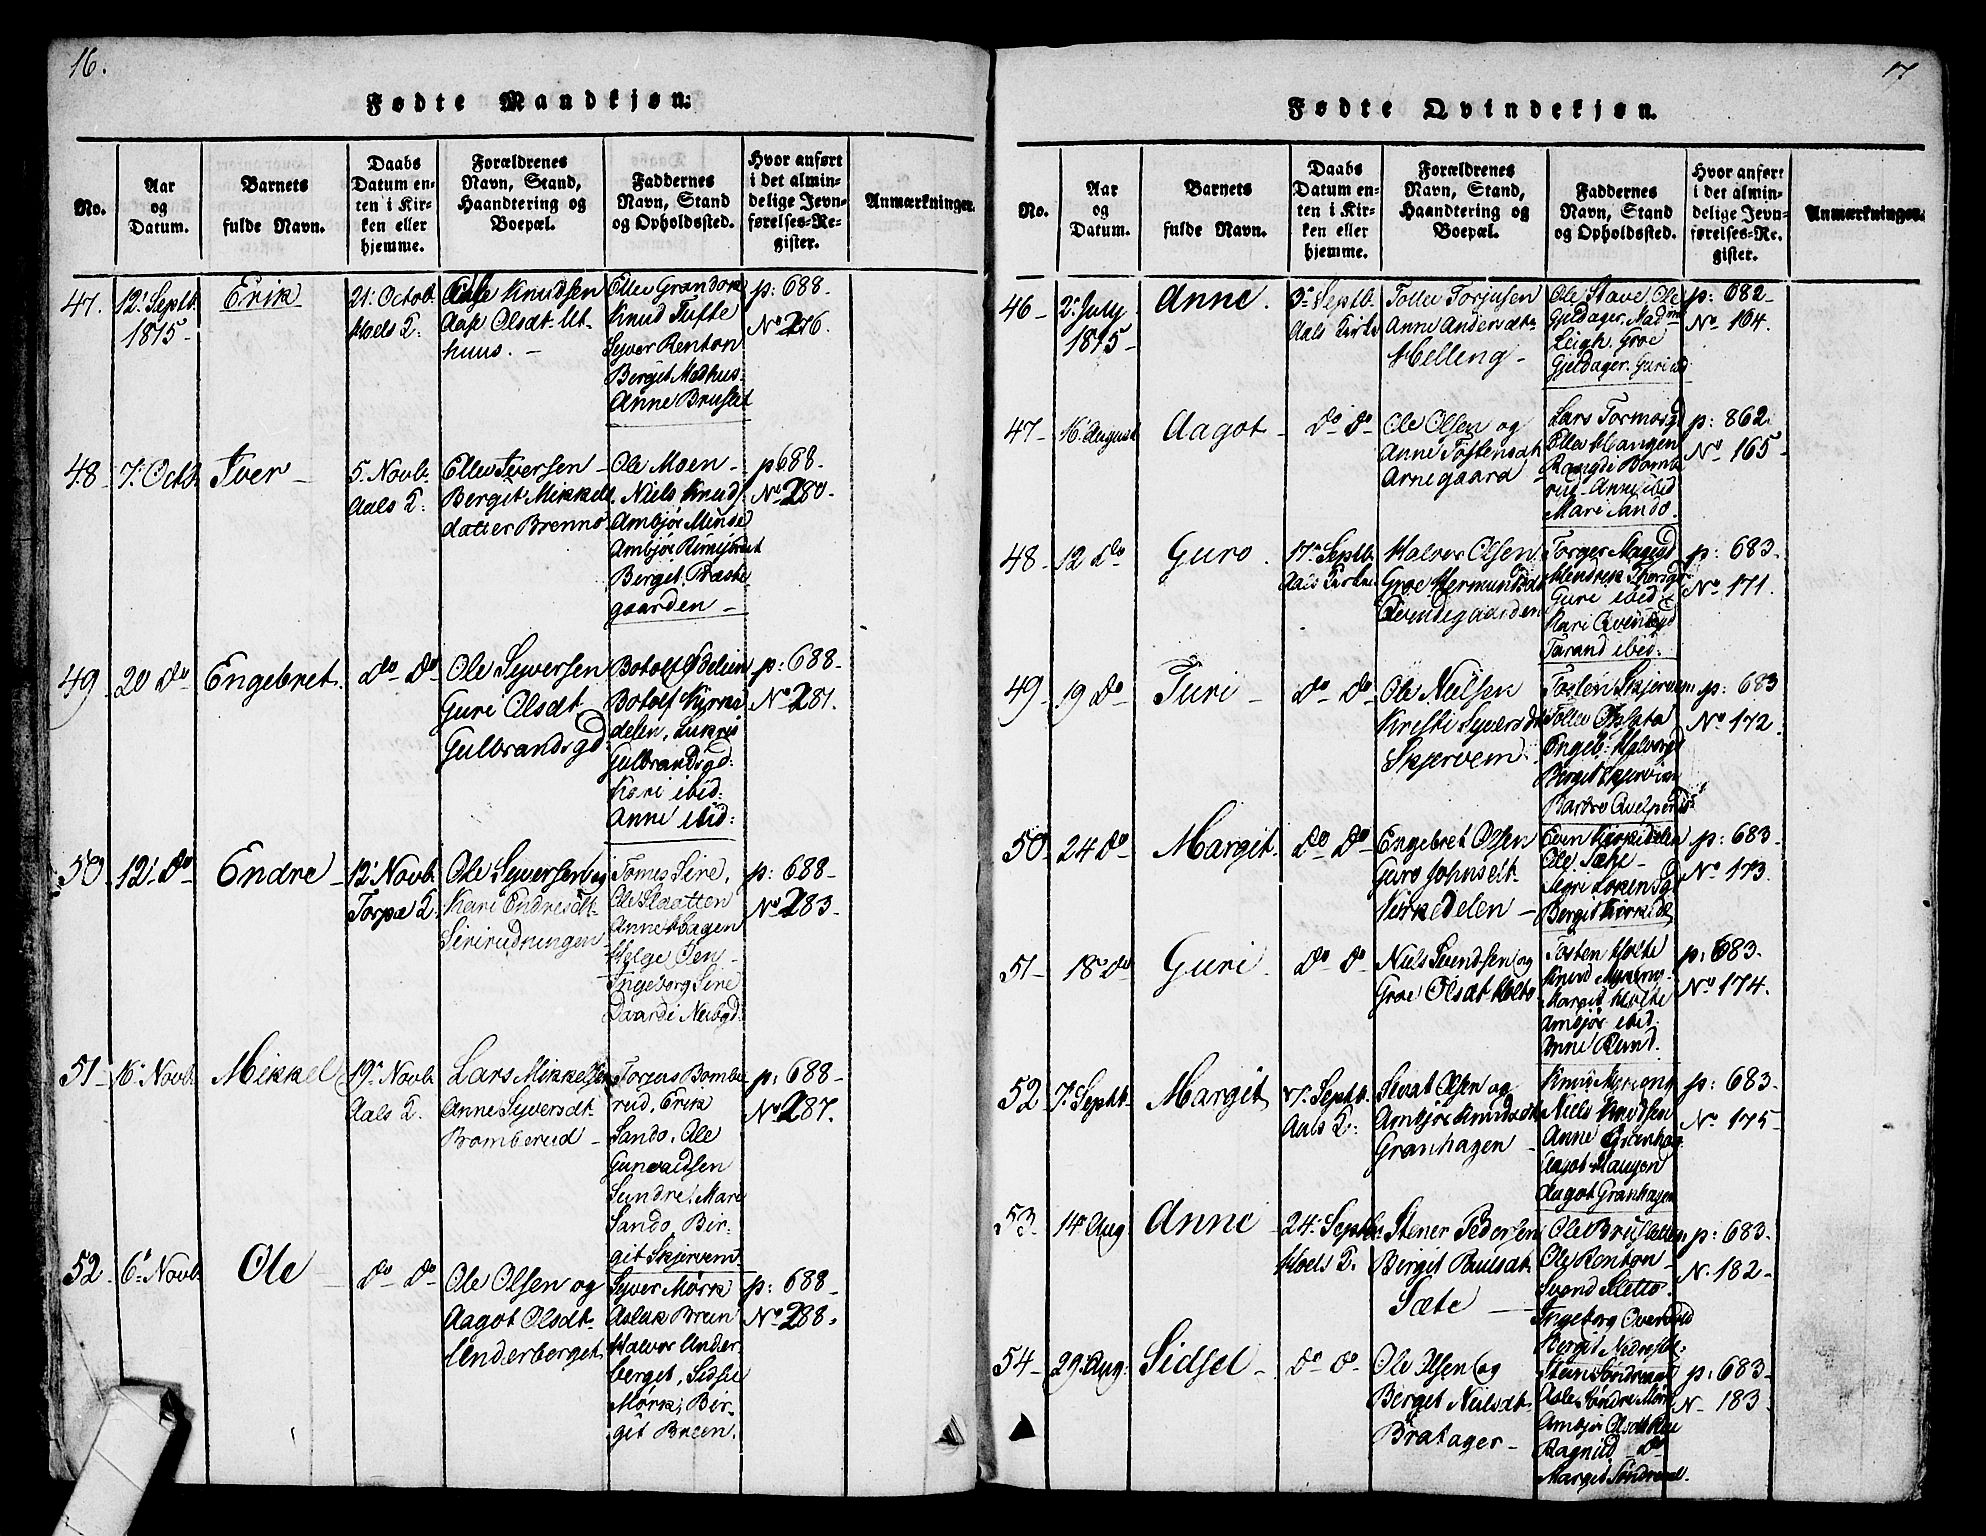 16.
Fødte Mandkjøn:
No.
Aar
og
Datum.
Barnets
fulde Navn.
Daabs
Datum en-
ten i Kir-
ken eller
hjemme.
Forældrenes
Navn, Stand,
Haandtering og
Boepæl.
Faddernes
Navn, Stand
og Opholdssted.
Hvor anført
i det almin-
delige Jevn-
førelses-Re-
gister.
Anmærkninger.
47.
12' Septb
1815-
Erik
21' Octob
Hoels K:
Knudsen
Olsdt. Ut-
huus. -
Ellev Grandok
Knud Tufte
Syver Renton
Berget Medhus
Anne Bruslet
p: 688-
No 276.
48-
7' Octb.
Iver -
5. Novb
Aals K:
Ellev Iversen -
Berget Mikkels
datter Brenno
Ole Moen -
Niels Knuds
Ambjør Minde
Ambjør
Berget Præste
gaarden -
p 688-
No 280-
49-
20 do
Engebret.
do do
Ole Syversen
Guri Olsdt
Gulbrandsgd.
Botolf
Botolf
delen,
Gulbrandsgd:
Kari ibid:
Anne ibid:
p: 688-
No 281.
50-
12'- do
Endre -
12' Novb
Torpe K.
Ole Syversen og
Kari Endresdt-
Sirirudningen
Tomes Sire,
Ole Slaatten
Anne Hagen
Helge Øen-
Ingeborg Sire
p: 688-
No 283-
51-
16' Novb
Mikkel
19' Novb
Aals K.
Lars Mikkelsen
Anne Syversdt.
Bomberud -
Torgus Bombe
rud, Erik
Sando, Ole
Gunvaldsen
Sundre, Mare
Sando, Bir-
git Skjervem
p: 688-
No 287.
52-
6' Novb
Ole -
do do
Ole Olsen og
Aagot Olsdt-
Underberget
Syver Mørk
Aslak Breen
Halvor Under
berget, Sidsel
Mørk, Bir-
git Breen.
p: 688-
No 288.
17
Fødte Qvindekjøn.
No.
Aar
og
Datum.
Barnets
fulde Navn.
Daabs
Datum en-
ten i Kir-
ken eller
hjemme.
Forældrenes
Navn, Stand,
Haandtering og
Boepæl.
Faddernes
Navn, Stand
og Opholdssted.
Hvor anført
i det almin-
delige Jevn-
førelses-Re-
gister.
Anmærkninger.
46-
2' July
1815-
Anne.
3' Septb.
Aals Kirke
Tollev Torjusen
Anne Andersdt.
Helling-
Ole Stave, Ole
Gjeldager, Mad
Leigh, Groe
Gjeldager. Guri ibd
p: 682-
No 164.
47-
16 August
Aagot -
do do
Ole Olsen og
Anne Tostensdt
Arnegaard -
Lars Tormosgd
Ellev Hangen
Rangdi Bomb
rud- Anne ibid
Mari Sando.
p: 862.
No 165-
48-
12 do
Guro.
17' Septb
Aals Kirke
Halvor Olsen
Groe Hermundsdt
Qvindegaarden
Torger
Hendrik
Guri ibid
Kari
Tarand ibid.
p: 683-
No 171.
49-
19 do
Turi -
do do
Ole Nielsen
Kristi Syversdt
Skjervem
Tosten Skjervem
Tollev
Engeb: Halvorgd
Berget Skjervem
Barbro
p: 683
No 172-
50-
24 do
Margit-
do do
Engebret Olsen
Guro Johnsdt.
Kirkedelen -
Even Kirkedelen
Ole Sæte -
Sigri Lorensgd
Bergit Kirkedel
p: 683-
No 173.
51-
18- do
Guri -
do do
Niels Svendsen og
Groe Olsdt. Holto
Tosten Holte
Knud
Margit Holte
Ambjør ibid.
Anne
p: 683-
No 174.
52
7' Septb.
Margit
17. Septb.
Aals K:
Sevat Olsen og
Ambjør Knudsdt
Granhagen -
Knud
Niels Knudsen
Anne Granhag.
Aagot Haugen
Aagot Granhagen
p: 683-
No 175-
53-
14 Aug
Anne -
24' Septb.
Hoels K.
Stener Pedersen
Birgit Paulsdt.
Sæte -
Ole Brusletten
Ole Renton -
Svend Sletto.
Ingeborg
Bergit
p: 683-
N. 182-
54-
29 Aug:
Sidsel -
do do
Ole Olsen og
Berget Nielsdt.
Bratager -
Sten
Asle Søndre Mørk
Ambjør Olsdt
Ragnild do
Margit
p: 683-
N- 183-